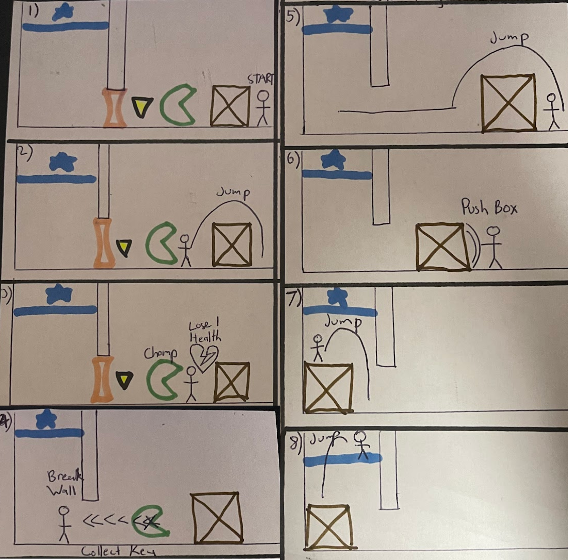 1)
START
2)
Jump
3)
Chomp
Lose 1
Health
4)
Break
Wall
Collect Key
5)
Jump
6)
Push Box
7)
Jump
8)
Jump